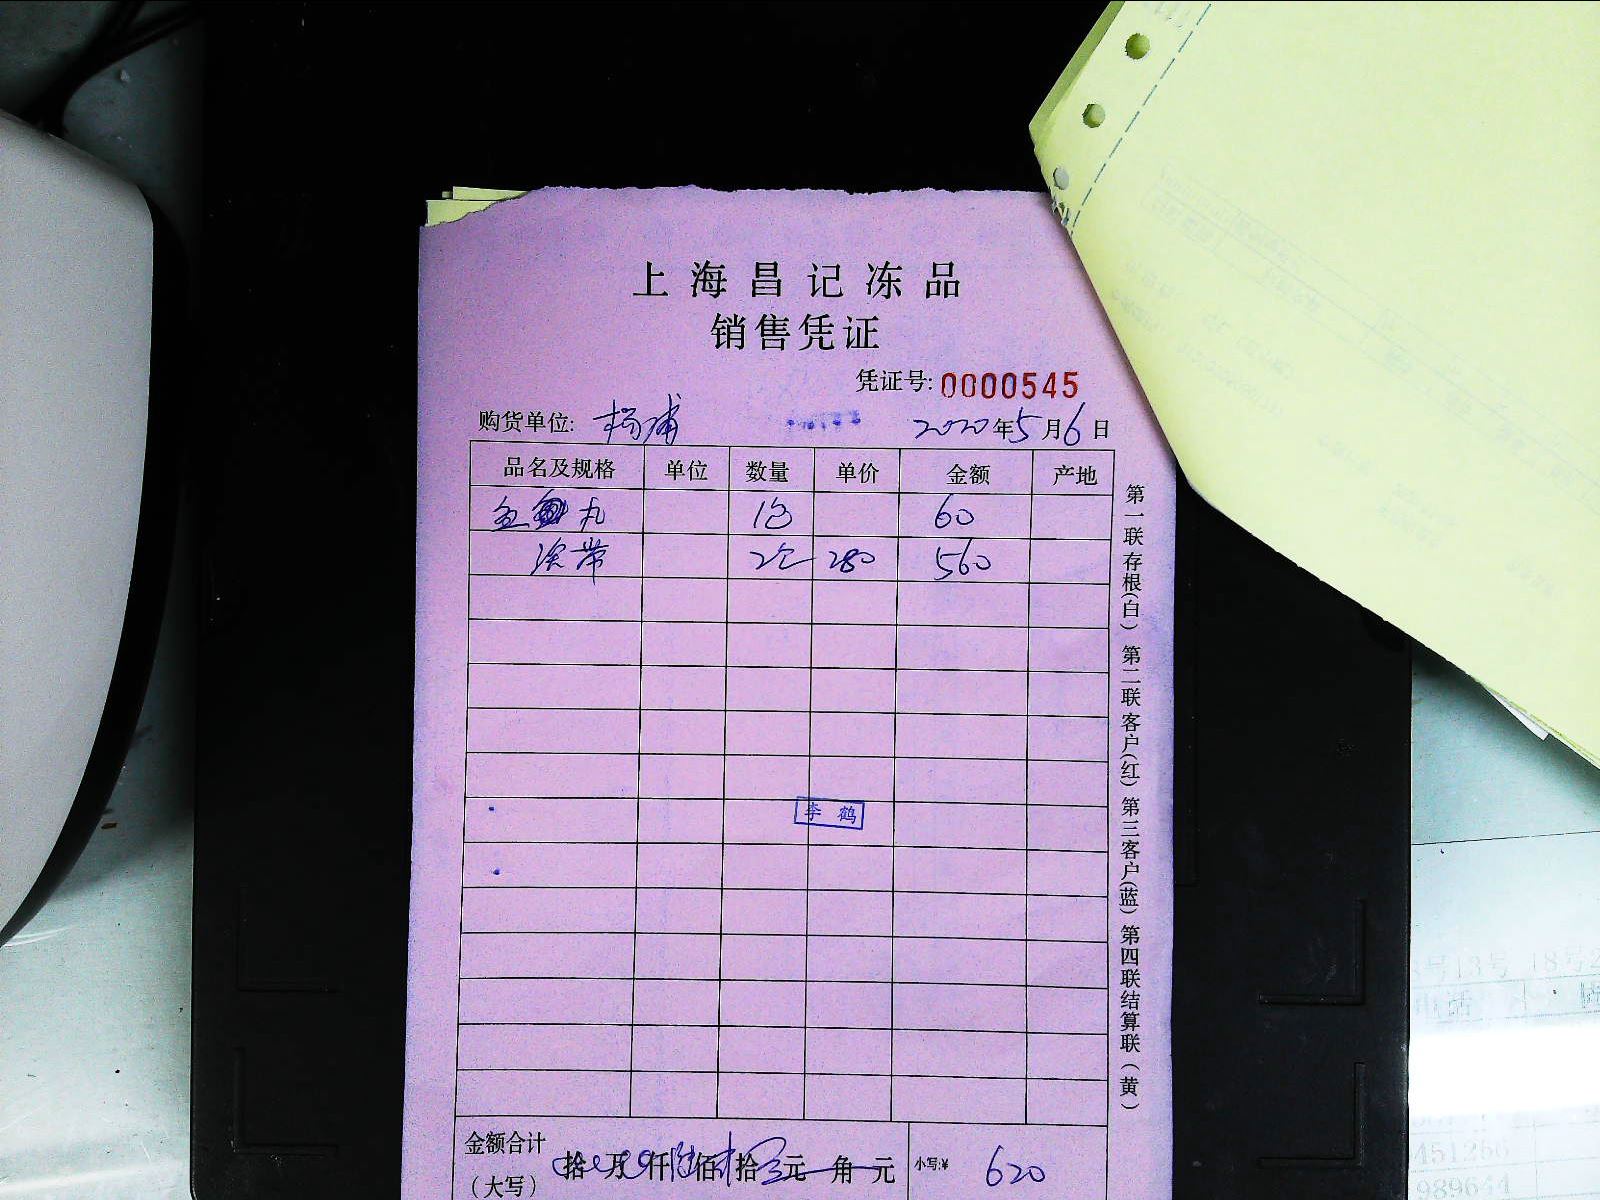 上海昌记冻品
销售凭证
凭证号: 0000545
购货单位: 杨浦 2020年5月6日
品名及规格 单位 数量 单价 金额 产地
鱼 丸 1包 60
带 2 280 560
李 鹤
金额合计
(大写) 拾 万 仟 佰 拾 元 角 元 小写:¥ 620
第一联存根(白) 第二联客户(红) 第三客户(蓝) 第四联结算联(黄)
号13号 18号
电话
451266
989644